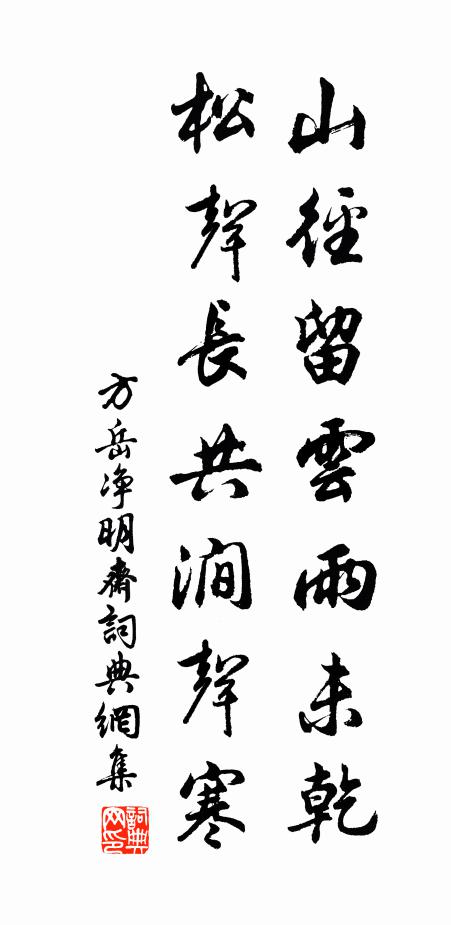 山徑留雲雨未乾
松聲長共澗聲寒
方岳净明齋詞典網集
詞典网印